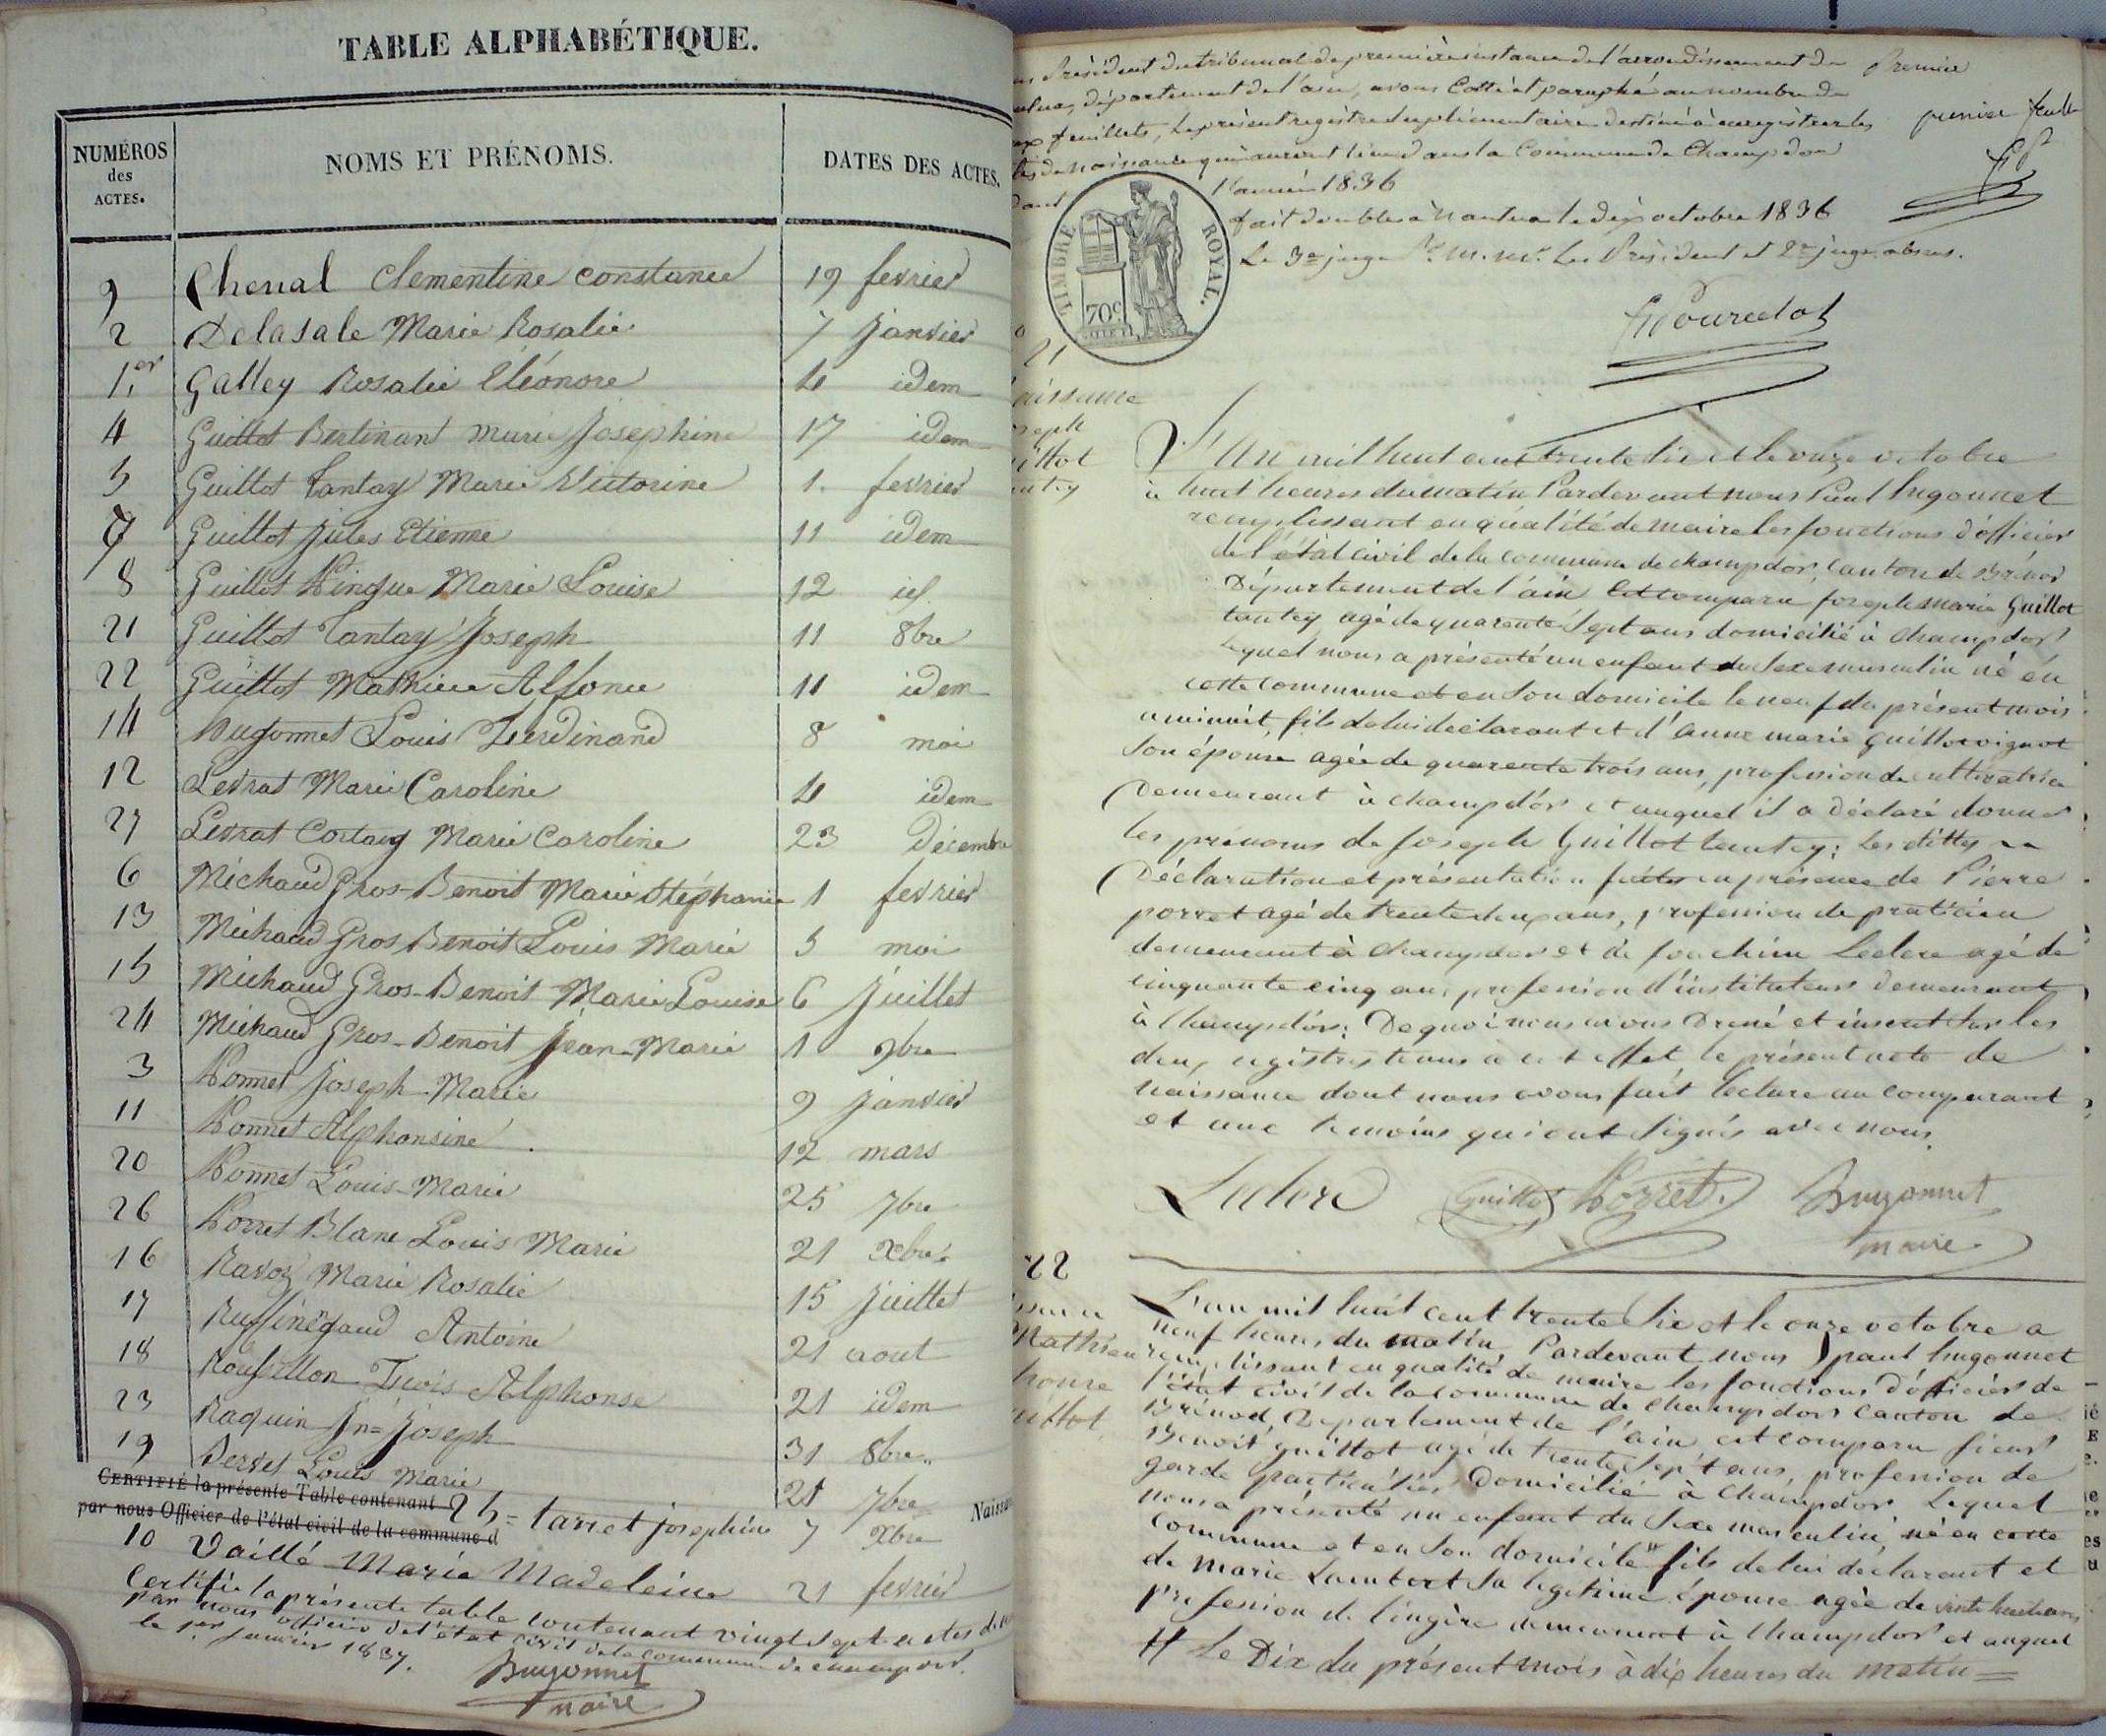 TABLE ALPHABÉTIQUE.
NUMÉROS
des
ACTES.
NOMS ET PRÉNOMS.
DATES DES ACTES.
9 Cheval Clementine constance 19 fevrier
2 Delasale Marie Rosalie 7 janvier
1.er Galley Rosalie Eléonore 4 idem
4 Guillot Bertinant marie Joséphine 17 idem
5 Guillot Tantay Marie Victorine 1. fevrier
7 Guillot Jules Etienne 11 idem
8 Guillot Marie Louise 12 id.
21 Guillot Tantay Joseph 11 8bre
22 Guillot Mathieu Alfonce 11 idem
14 Hugonnet Louis Ferdinand 8 mai
12 Levrat Marie Caroline 4 idem
27 Levrat Marie Caroline 23 Décembre
6 Michaud Gros-Benoit Marie Stéphanie 1 fevrier
13 Michaud Gros Benoit Louis Marie 5 mai
15 Michaud Gros-Benoit Marie Louise 6 Juillet
24 Michaud Gros-Benoit Jean-Marie 1 9bre
3 Joseph-Marie 9 janvier
11 Alphonsine 12 mars
20 Louis-Marie 25 7bre
26 Porret Blanc Louis Marie 21 Xbre
16 Ravoz Marie Rosalie 15 Juillet
17 Antoine 21 aout
18 Roussillon Alphonse 21 idem
23 Raquin Jn= Joseph 31 8bre
19 Louis Marie 21 7bre
CERTIFIÉ la présente Table contenant
25= Tarret josephine 7 Xbre
par nous Officier de l'état civil de la commune d
10 Vaillé Marie Madeleine 21 fevrier
Certifié la présente table contenant vingt sept actes de
par nous officier de l'état civil de la commune de champdor.
le 1er janvier 1837.
Hugonnet
maire
Président du tribunal de première instance de l'arrondissement de
département de l'ain, avons Cotté et paraphé au nombre de
feuillets, le présent registre supplémentaire destiné à enregistrer les
de naissance qui auront lieu dans la Commune de Champdor
l'année 1836
fait double à Nantua le dix octobre 1836
Le 3e juge Pr. M. M. Les Président et 2e juge absens.
Premier
premier feuille
TIMBRE ROYAL.
70c
21
aissance
oseph
illot
antey
L'An mil huit cent trente six et le onze octobre
à huit heures du matin Pardevant nous Paul hugonnet
remplissant en qualité de maire les fonctions d'officier
de l'état civil de la commune de champdor, canton de Brénod
Département de l'ain Est comparu Joseph marie Guillot
tantey agé de quarante sept ans domicilié à champdor
Lequel nous a présenté un enfant du sexe masculin né en
cette commune et en son domicile le neuf du présent mois
a minuit, fils de lui déclarant et d'anne marie guillot vignot
son épouse agée de quarante trois ans, profession de cultivatrice
Demeurant à champdor et auquel il a déclaré donner
les prénoms de Joseph Guillot tantey; Les dittes
Déclaration et présentation faites en présence de Pierre
porret agé de trente deux ans, profession de praticien
demeurant à champdor et de joachim Leclerc agé de
cinquante cinq ans, profession d'instituteur demeurant
à Champdor; De quoi nous avons Dressé et inscrit sur les
deux registres tenus à cet effet, le présent acte de
naissance dont nous avons fait lecture au comparant
et aux temoins qui ont signés avec nous.
Leclerc Guillot Porret Hugonnet
maire
22
Mathieu
L'an mil huit cent trente six et le onze octobre a
neuf heures du matin Pardevant nous paul hugonnet
remplissant en qualité de maire les fonctions d'officier de
l'état civil de la commune de champdor canton de
Brénod Département de l'ain est comparu sieur
Benoit guillot agé de trente sept ans, profession de
garde particulier Domicilié à Champdor Lequel
nous a présenté un enfant du sexe masculin, né en cette
commune et en son domicile # fils de lui déclarant et
de marie Lambert sa legitime épouse agée de vint huit ans
profession de lingère demeurant à champdor et auquel
# Le Dix du présent mois à dix heures du matin =